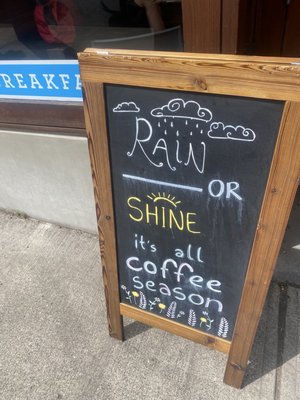 BREAKFA
RAIN
OR
SHINE
it's all
coffee
season